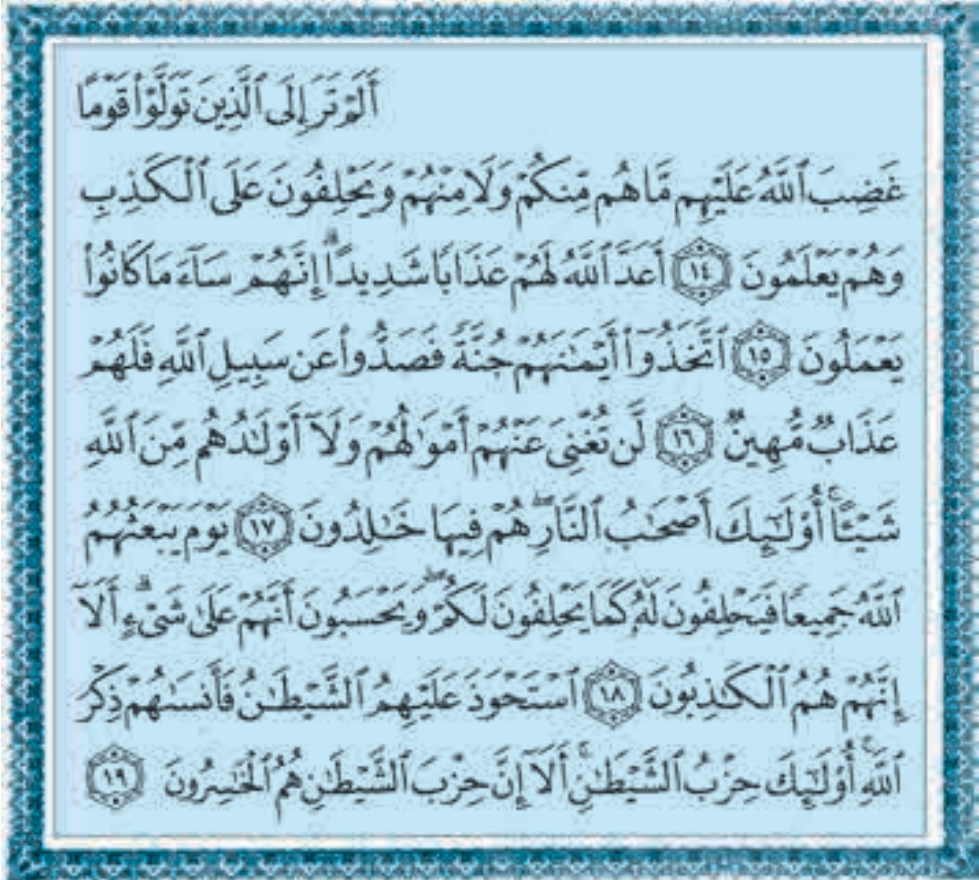 أَلَمْ تَرَ إِلَى ٱلَّذِينَ تَوَلَّوْا۟ قَوْمًا
غَضِبَ ٱللَّهُ عَلَيْهِم مَّا هُم مِّنكُمْ وَلَا مِنْهُمْ وَيَحْلِفُونَ عَلَى ٱلْكَذِبِ
وَهُمْ يَعْلَمُونَ ١٤ أَعَدَّ ٱللَّهُ لَهُمْ عَذَابًا شَدِيدًا ۖ إِنَّهُمْ سَآءَ مَا كَانُوا۟
يَعْمَلُونَ ١٥ ٱتَّخَذُوٓا۟ أَيْمَٰنَهُمْ جُنَّةً فَصَدُّوا۟ عَن سَبِيلِ ٱللَّهِ فَلَهُمْ
عَذَابٌ مُّهِينٌ ١٦ لَّن تُغْنِىَ عَنْهُمْ أَمْوَٰلُهُمْ وَلَآ أَوْلَٰدُهُم مِّنَ ٱللَّهِ
شَيْـًٔا ۚ أُو۟لَٰٓئِكَ أَصْحَٰبُ ٱلنَّارِ ۖ هُمْ فِيهَا خَٰلِدُونَ ١٧ يَوْمَ يَبْعَثُهُمُ
ٱللَّهُ جَمِيعًا فَيَحْلِفُونَ لَهُۥ كَمَا يَحْلِفُونَ لَكُمْ ۖ وَيَحْسَبُونَ أَنَّهُمْ عَلَىٰ شَىْءٍ ۚ أَلَآ
إِنَّهُمْ هُمُ ٱلْكَٰذِبُونَ ١٨ ٱسْتَحْوَذَ عَلَيْهِمُ ٱلشَّيْطَٰنُ فَأَنسَىٰهُمْ ذِكْرَ
ٱللَّهِ ۚ أُو۟لَٰٓئِكَ حِزْبُ ٱلشَّيْطَٰنِ ۚ أَلَآ إِنَّ حِزْبَ ٱلشَّيْطَٰنِ هُمُ ٱلْخَٰسِرُونَ ١٩